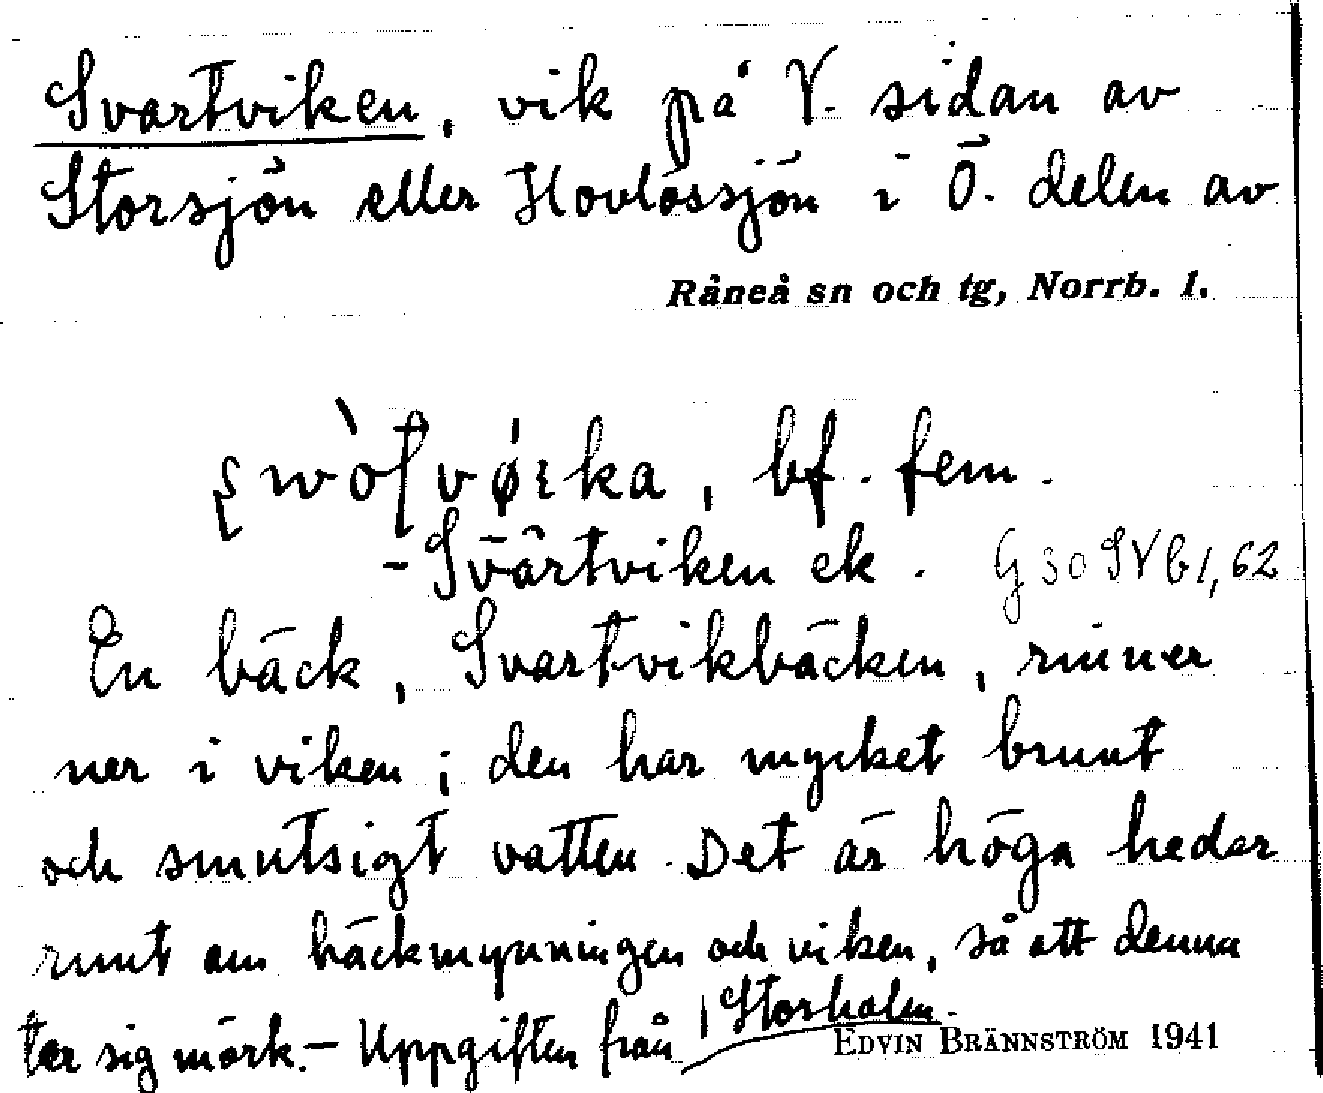 Svartviken, vik på V. sidan av
Storsjön eller Hovlössjön i Ö. delen av
Råneå sn och tg, Norrb. l.
bf. fem.
- Svartviken ek. G 30 SV b 1, 62
En bäck, Svartvikbäcken, rinner
ner i viken; den har mycket brunt
och smutsigt vatten. Det är höga hedar
runt om bäckmynningen och viken, så att denna
ter sig mörk. - Uppgiften från Storholm.
EDVIN BRÄNNSTRÖM 1941